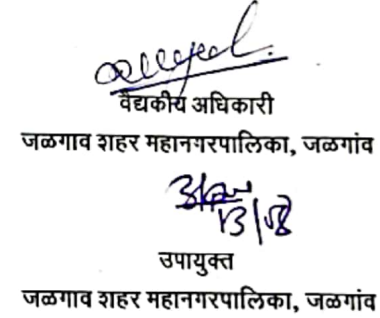 वैद्यकीय अधिकारी
जळगाव शहर महानगरपालिका, जळगांव
उपायुक्त
जळगाव शहर महानगरपालिका, जळगांव